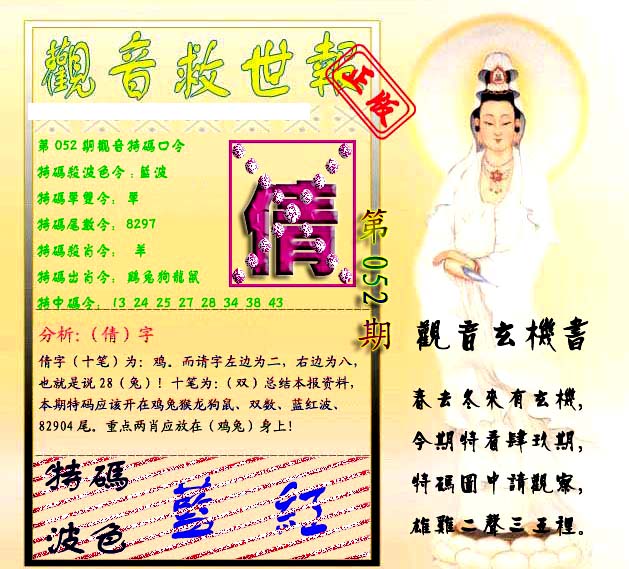 觀音救世報
正版
第052期觀音特碼口令
特碼殺波色令：藍波
特碼單雙令： 單
特碼尾數令： 8297
特碼殺肖令： 羊
特碼出肖令： 鷄兔狗龍鼠
特中碼令： 13 24 25 27 28 34 38 43
倩
第052期
分析：（倩）字
倩字（十笔）为：鸡。而请字左边为二，右边为八，
也就是说28（兔）！十笔为：（双）总结本报资料，
本期特码应该开在鸡兔猴龙狗鼠、双数、蓝红波、
82904尾。重点两肖应放在（鸡兔）身上！
特碼
波色
藍 红
觀音玄機書
春去冬來有玄機，
今期特看肆玖期，
特碼圖中請觀察，
雄雞二聲三五裡。